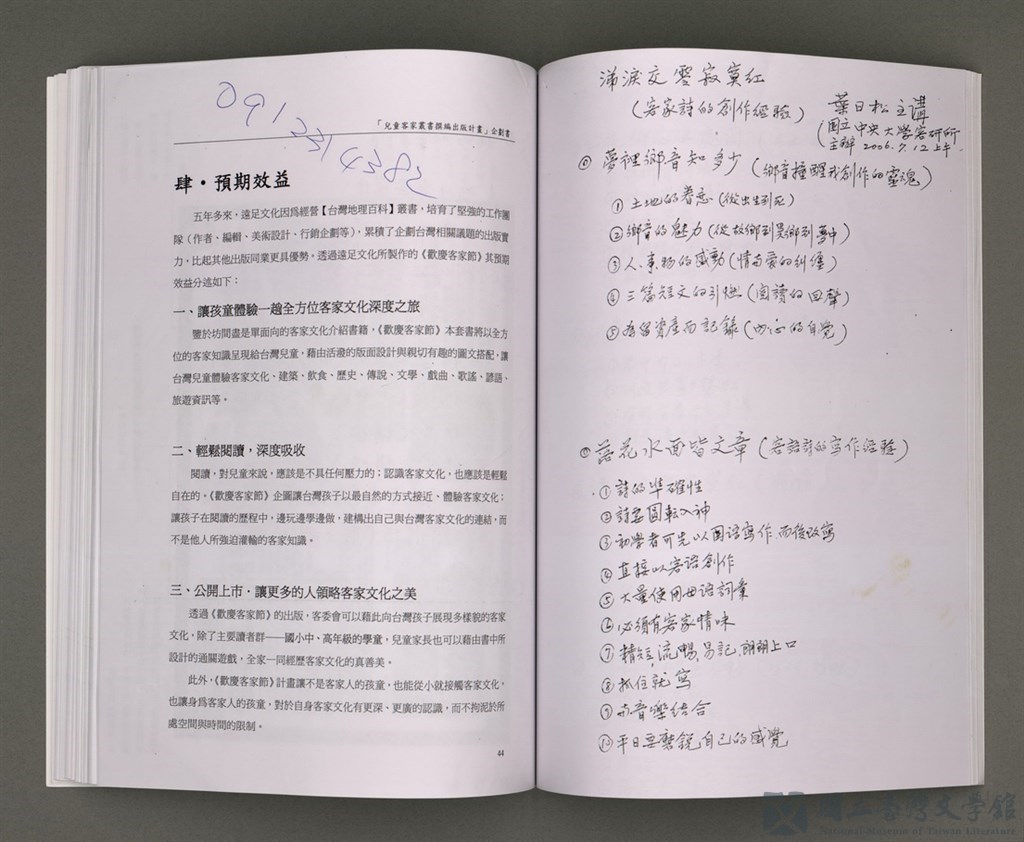 0912314382
「兒童客家叢書撰編出版計畫」企劃書
肆・預期效益
五年多來，遠足文化因為經營【台灣地理百科】叢書，培育了堅強的工作團
隊（作者、編輯、美術設計、行銷企劃等），累積了企劃台灣相關議題的出版實
力，比起其他出版同業更具優勢。透過遠足文化所製作的《歡慶客家節》其預期
效益分述如下：
一、讓孩童體驗一趟全方位客家文化深度之旅
鑒於坊間盡是單面向的客家文化介紹書籍，《歡慶客家節》本套書將以全方
位的客家知識呈現給台灣兒童，藉由活潑的版面設計與親切有趣的圖文搭配，讓
台灣兒童體驗客家文化、建築、飲食、歷史、傳說、文學、戲曲、歌謠、諺語、
旅遊資訊等。
二、輕鬆閱讀，深度吸收
閱讀，對兒童來說，應該是不具任何壓力的；認識客家文化，也應該是輕鬆
自在的。《歡慶客家節》企圖讓台灣孩子以最自然的方式接近、體驗客家文化；
讓孩子在閱讀的歷程中，邊玩邊學邊做，建構出自己與台灣客家文化的連結，而
不是他人所強迫灌輸的客家知識。
三、公開上市・讓更多的人領略客家文化之美
透過《歡慶客家節》的出版，客委會可以藉此向台灣孩子展現多樣貌的客家
文化，除了主要讀者群──國小中、高年級的學童，兒童家長也可以藉由書中所
設計的通關遊戲，全家一同經歷客家文化的真善美。
此外，《歡慶客家節》計畫讓不是客家人的孩童，也能從小就接觸客家文化，
也讓身為客家人的孩童，對於自身客家文化有更深、更廣的認識，而不拘泥於所
處空間與時間的限制。
44
滿淚交零寂寞紅
（客家詩的創作經驗）
葉日松主講
（國立中央大學客研所
主辦 2006.7.12上午.
◎ 夢裡鄉音知多少（鄉音撞醒我創作的靈魂）
① 土地的眷戀（從出生到死）
② 鄉音的魅力（從故鄉到異鄉到夢中）
③ 人、事、物的感動（情與愛的糾纏）
④ 三篇短文的引燃（閱讀的回聲）
⑤ 為留資產而記錄（內心的自覺）
◎ 落花水面皆文章（客語詩的寫作經驗）
① 詩的準確性
② 詩思圓轉入神
③ 初學者可先以國語寫作，而後改寫
④ 直接以客語創作
⑤ 大量使用母語詞彙
⑥ 必須有客家情味
⑦ 精短、流暢、易記、朗朗上口
⑧ 抓住就寫
⑨ 與音樂結合
⑩ 平日要磨銳自己的感覺
國立臺灣文學館
National Museum of Taiwan Literature